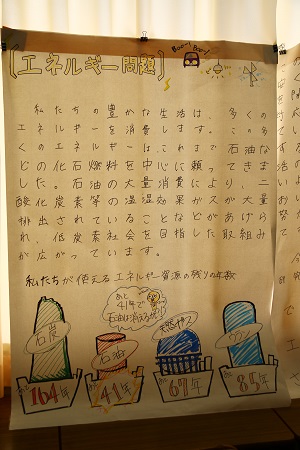 Boo-! Boo-!
【エネルギー問題】
私たちの豊かな生活は、多くの
エネルギーを消費します。この多
くのエネルギーはこれまで石油な
どの化石燃料を中心に頼ってきま
した。石油の大量消費により、二
酸化炭素等の温室効果ガスが大量
排出されていることなどがあげら
れ、低炭素社会を目指した取組み
が広がっています。
私たちが使えるエネルギー資源の残りの年数
あと
41年で
石油は消えるかも
石炭
石油
天然ガス
ウラン
あと
164年
あと
41年
あと
67年
あと
85年